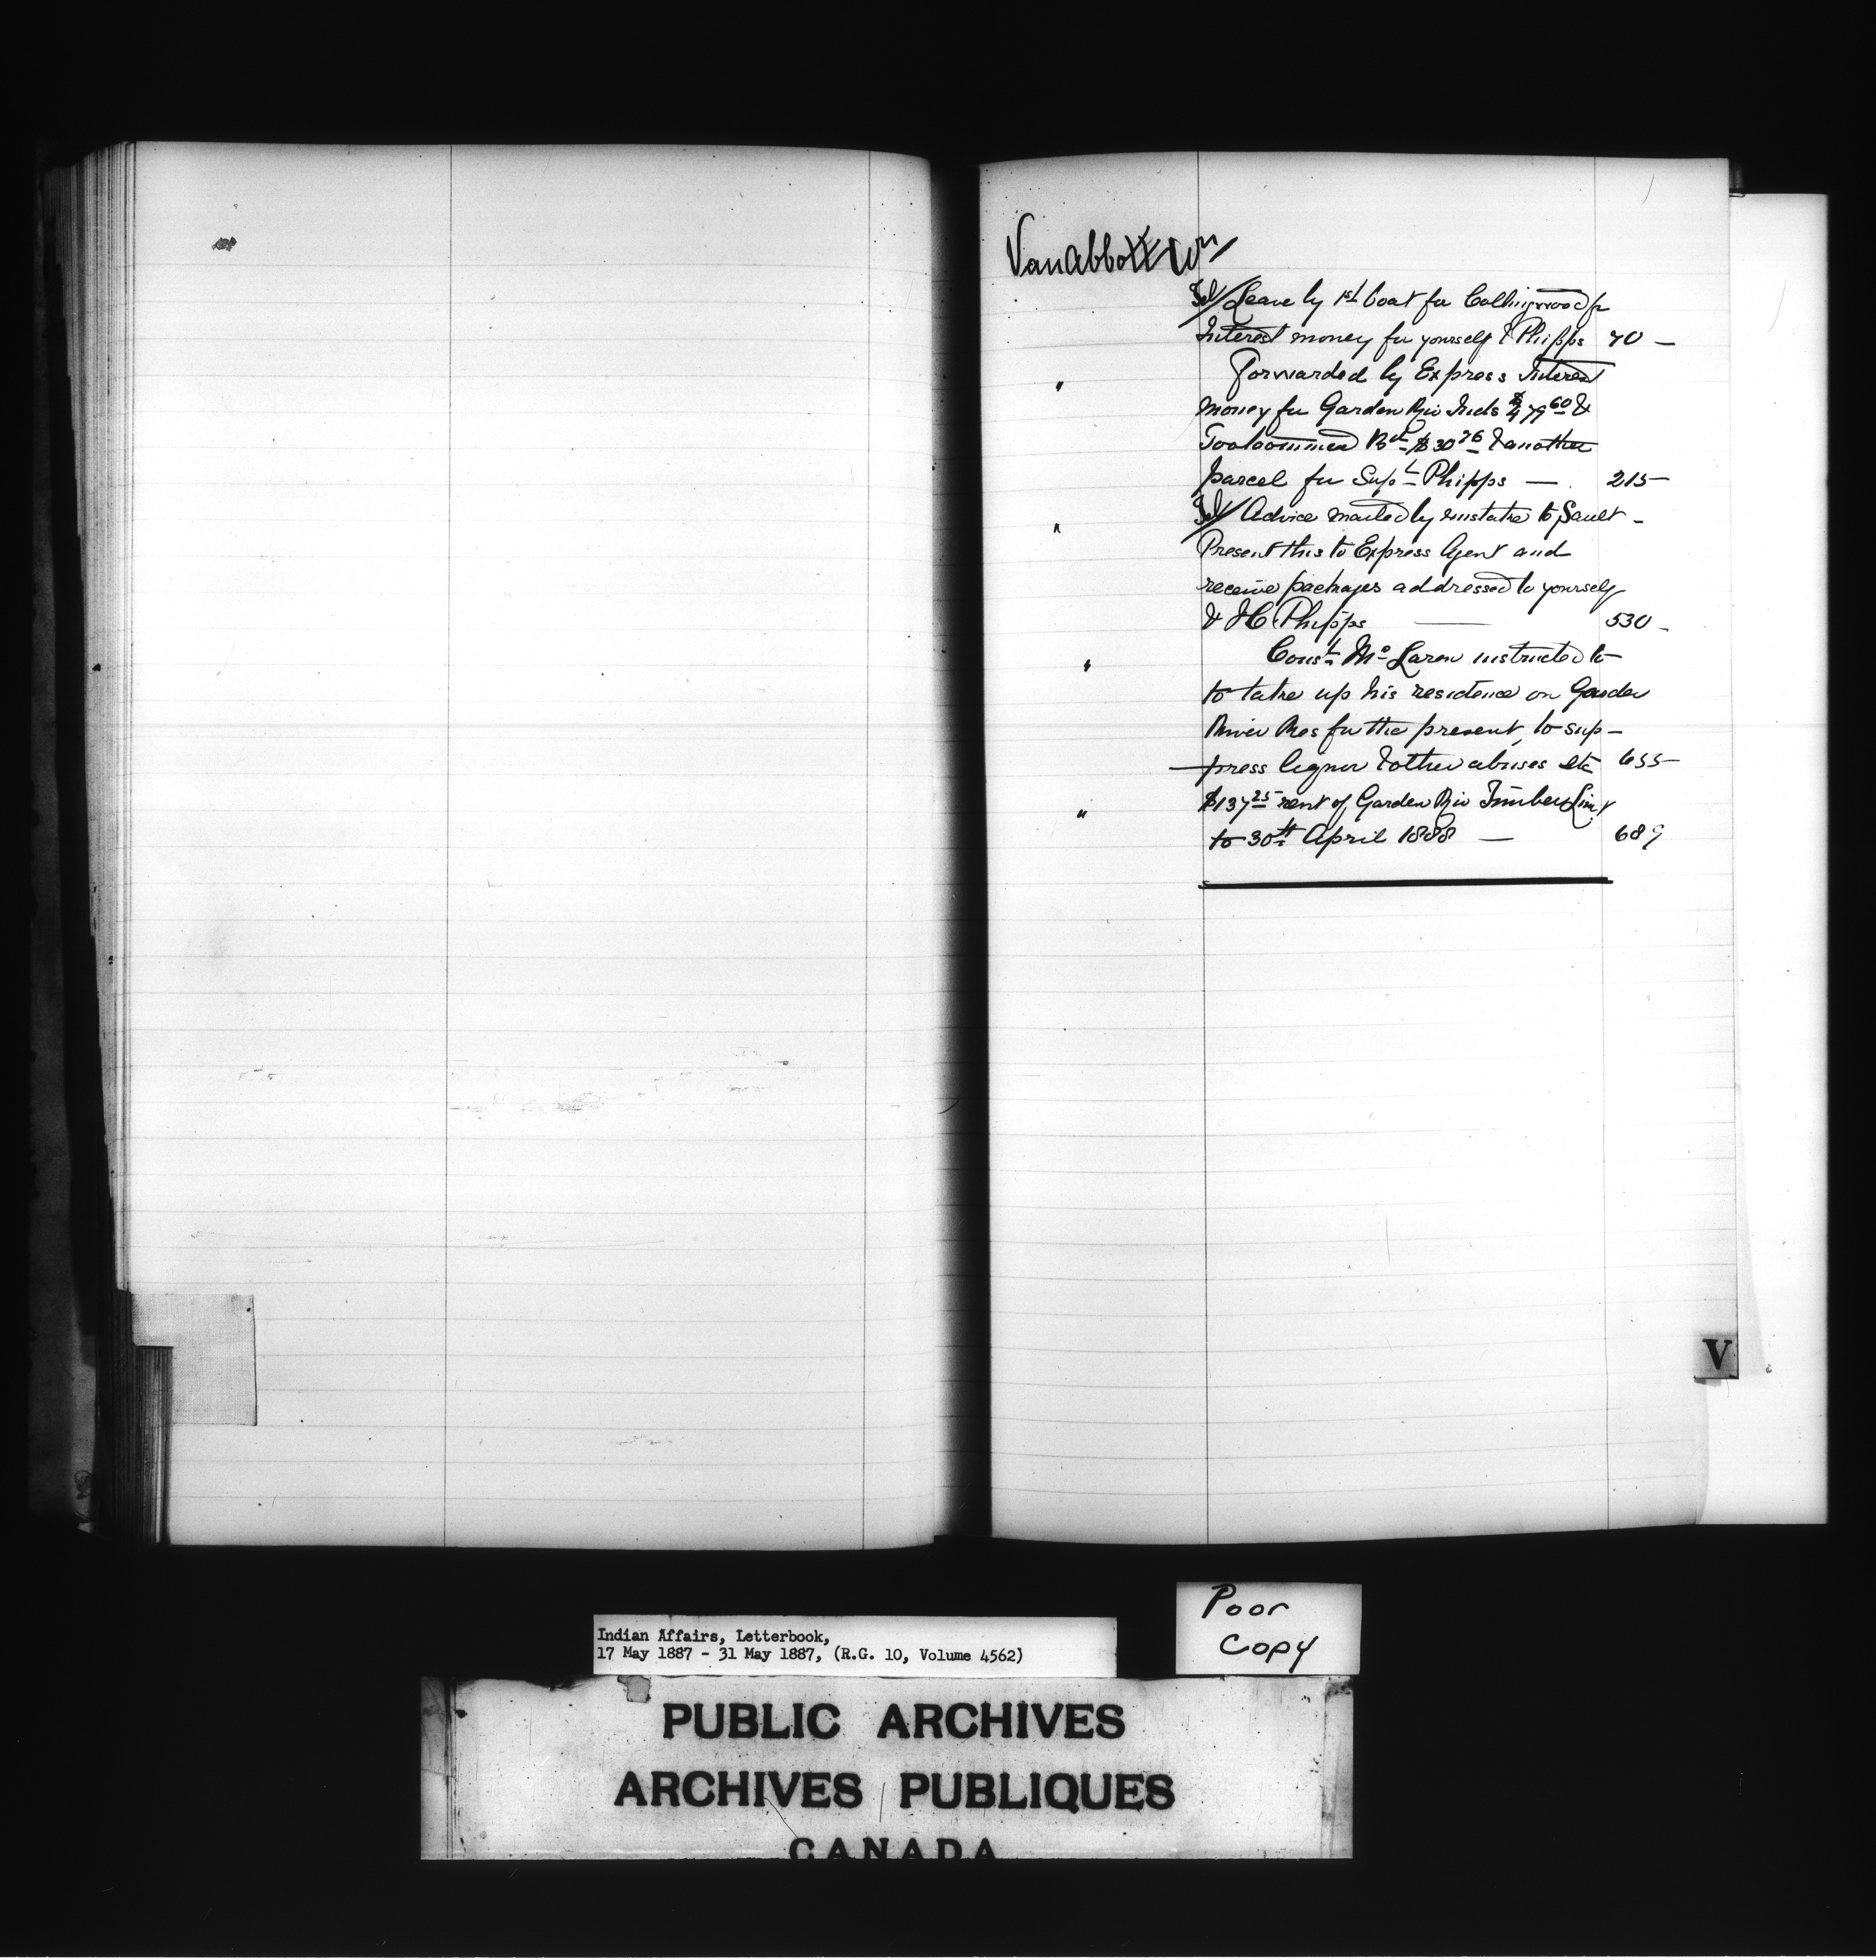 VanAbbott Wm
Tel/ Leave by 1st boat for Collingwood for
Interest money for yourself & Phipps 70 —
" Forwarded by Express Interest
money for Garden Riv Inds $479.60 &
Bd $30.76 & another
parcel for Supt Phipps — 215 —
" Tel/ Advice mailed by mistake to Sault -
Present this to Express Agent and
receive packages addressed to yourself
& J C Phipps — 530 -
" Const. Mc Laren instructed to
to take up his residence on Garden
River Res for the present, to sup-
press liquor & other abuses etc 655 —
" $137.25 rent of Garden Riv Timber Limt
to 30th April 1888 — 689
V
Poor
Copy
Indian Affairs, Letterbook,
17 May 1887 - 31 May 1887, (R.G. 10, Volume 4562)
PUBLIC ARCHIVES
ARCHIVES PUBLIQUES
CANADA